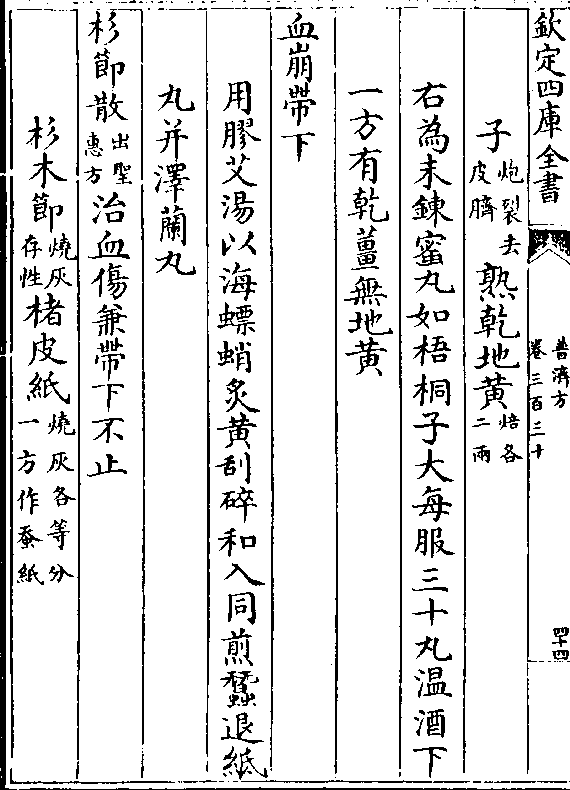 欽定四庫全書
普濟方
卷三百三十
四十四
子炮裂去皮臍熟乾地黄焙各二兩
右為末鍊蜜丸如梧桐子大每服三十丸温酒下
一方有乾薑無地黄
血崩帶下
用膠艾湯以海螵蛸炙黄刮碎和入同煎蠶退紙
丸并澤蘭丸
杉節散出聖惠方治血傷兼帶下不止
杉木節燒灰存性楮皮紙燒灰各等分一方作蚕紙